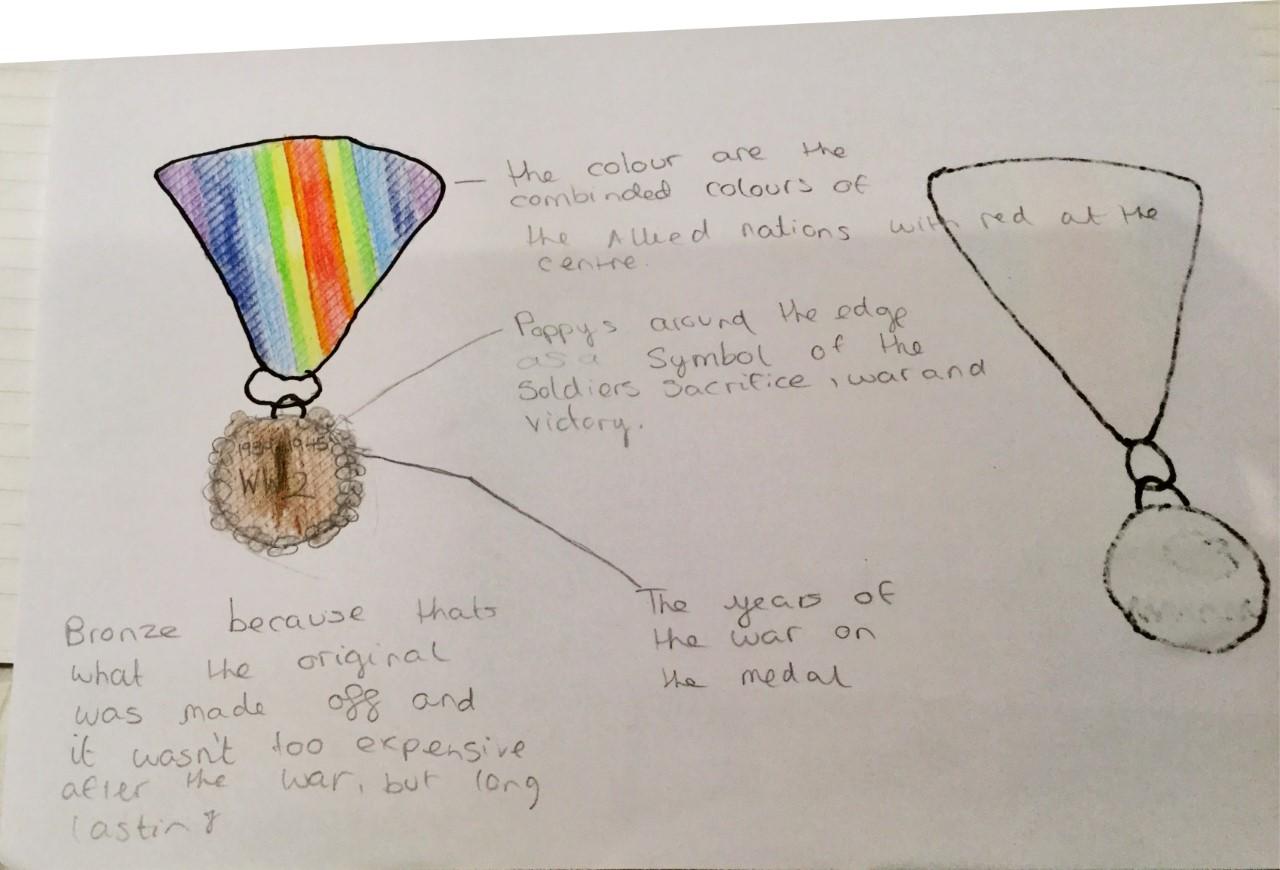 the colour are the
combinded colours of
the Allied nations with red at the
centre.
Poppys around the edge
as a Symbol of the
Soldiers Sacrifice, war and
victory.
1939 1945
WW2
The years of
the war on
the medal
Bronze because thats
what the original
was made off and
it wasn't too expensive
after the war, but long
lasting